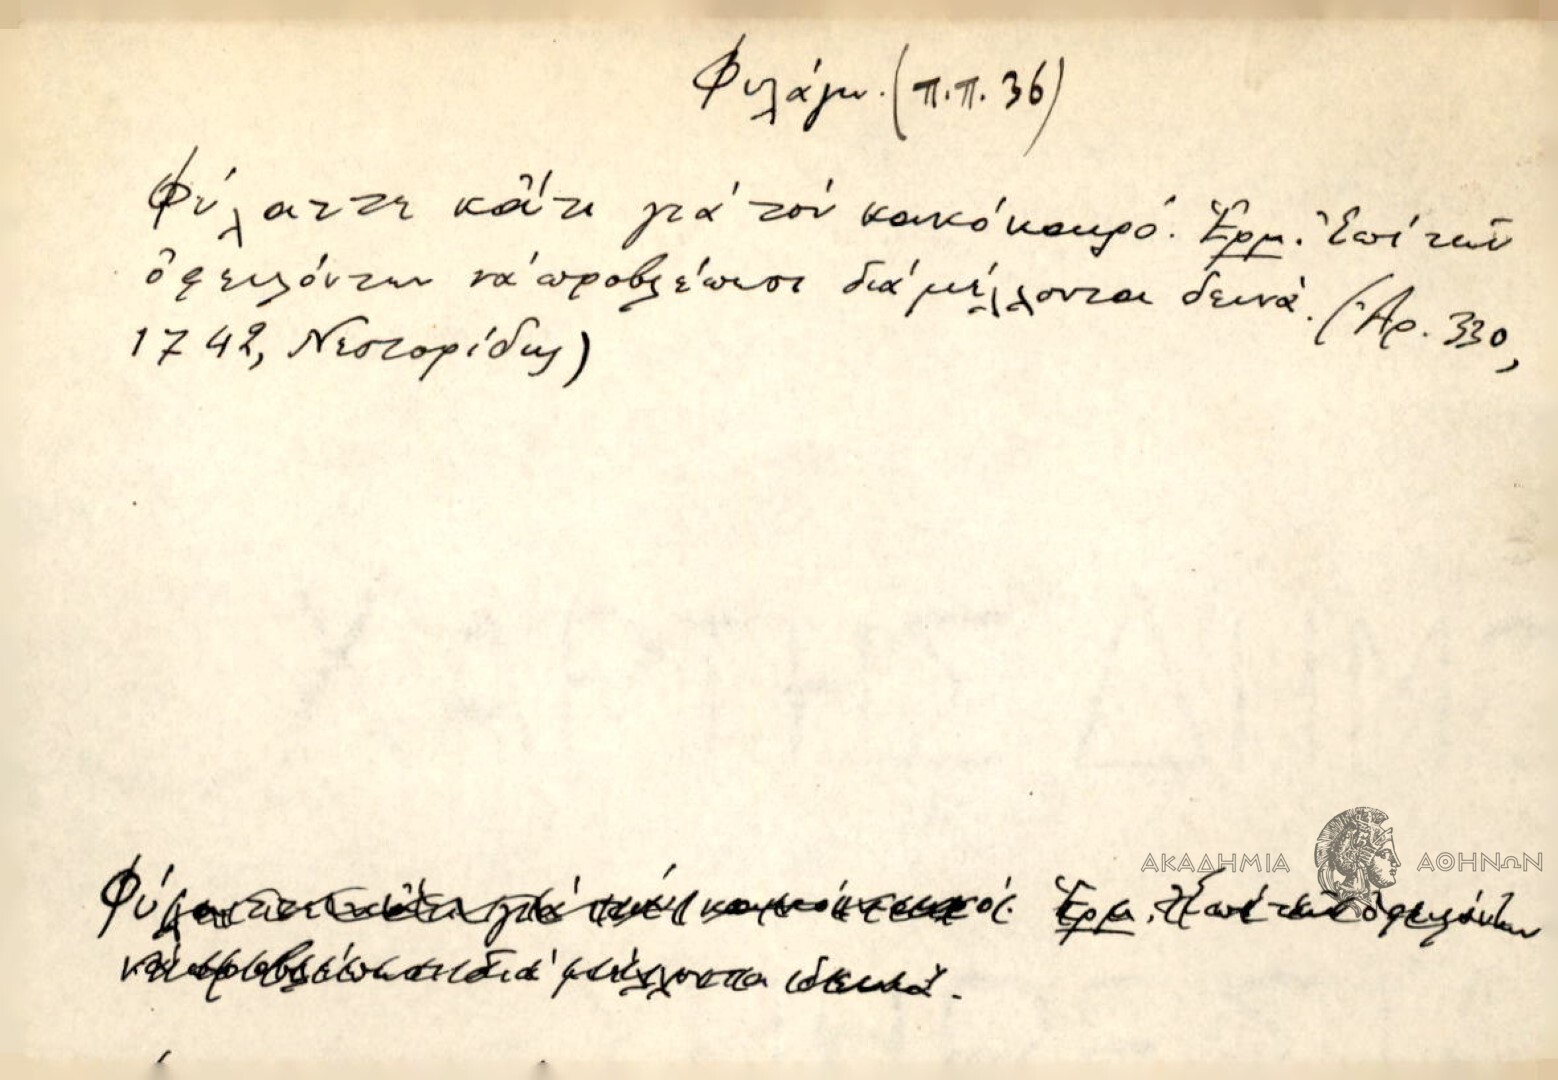 Φυλάγω. (π.π. 36)
Φύλαττε κἄτι γιά τόν κακό καιρό. Ἑρμ. Ἐπί τῶν
ὀφειλόντων νά προβλέπωσι διά μέλλοντα δεινά. (Ἀρ. 330,
1742, Νεστορίδης)
ΑΚΑΔΗΜΙΑ ΑΘΗΝΩΝ
Φύλαττε κἄτι γιά τόν κακό καιρό. Ἑρμ. Ἐπί τῶν ὀφειλόντων
νά προβλέπωσι διά μέλλοντα δεινά.